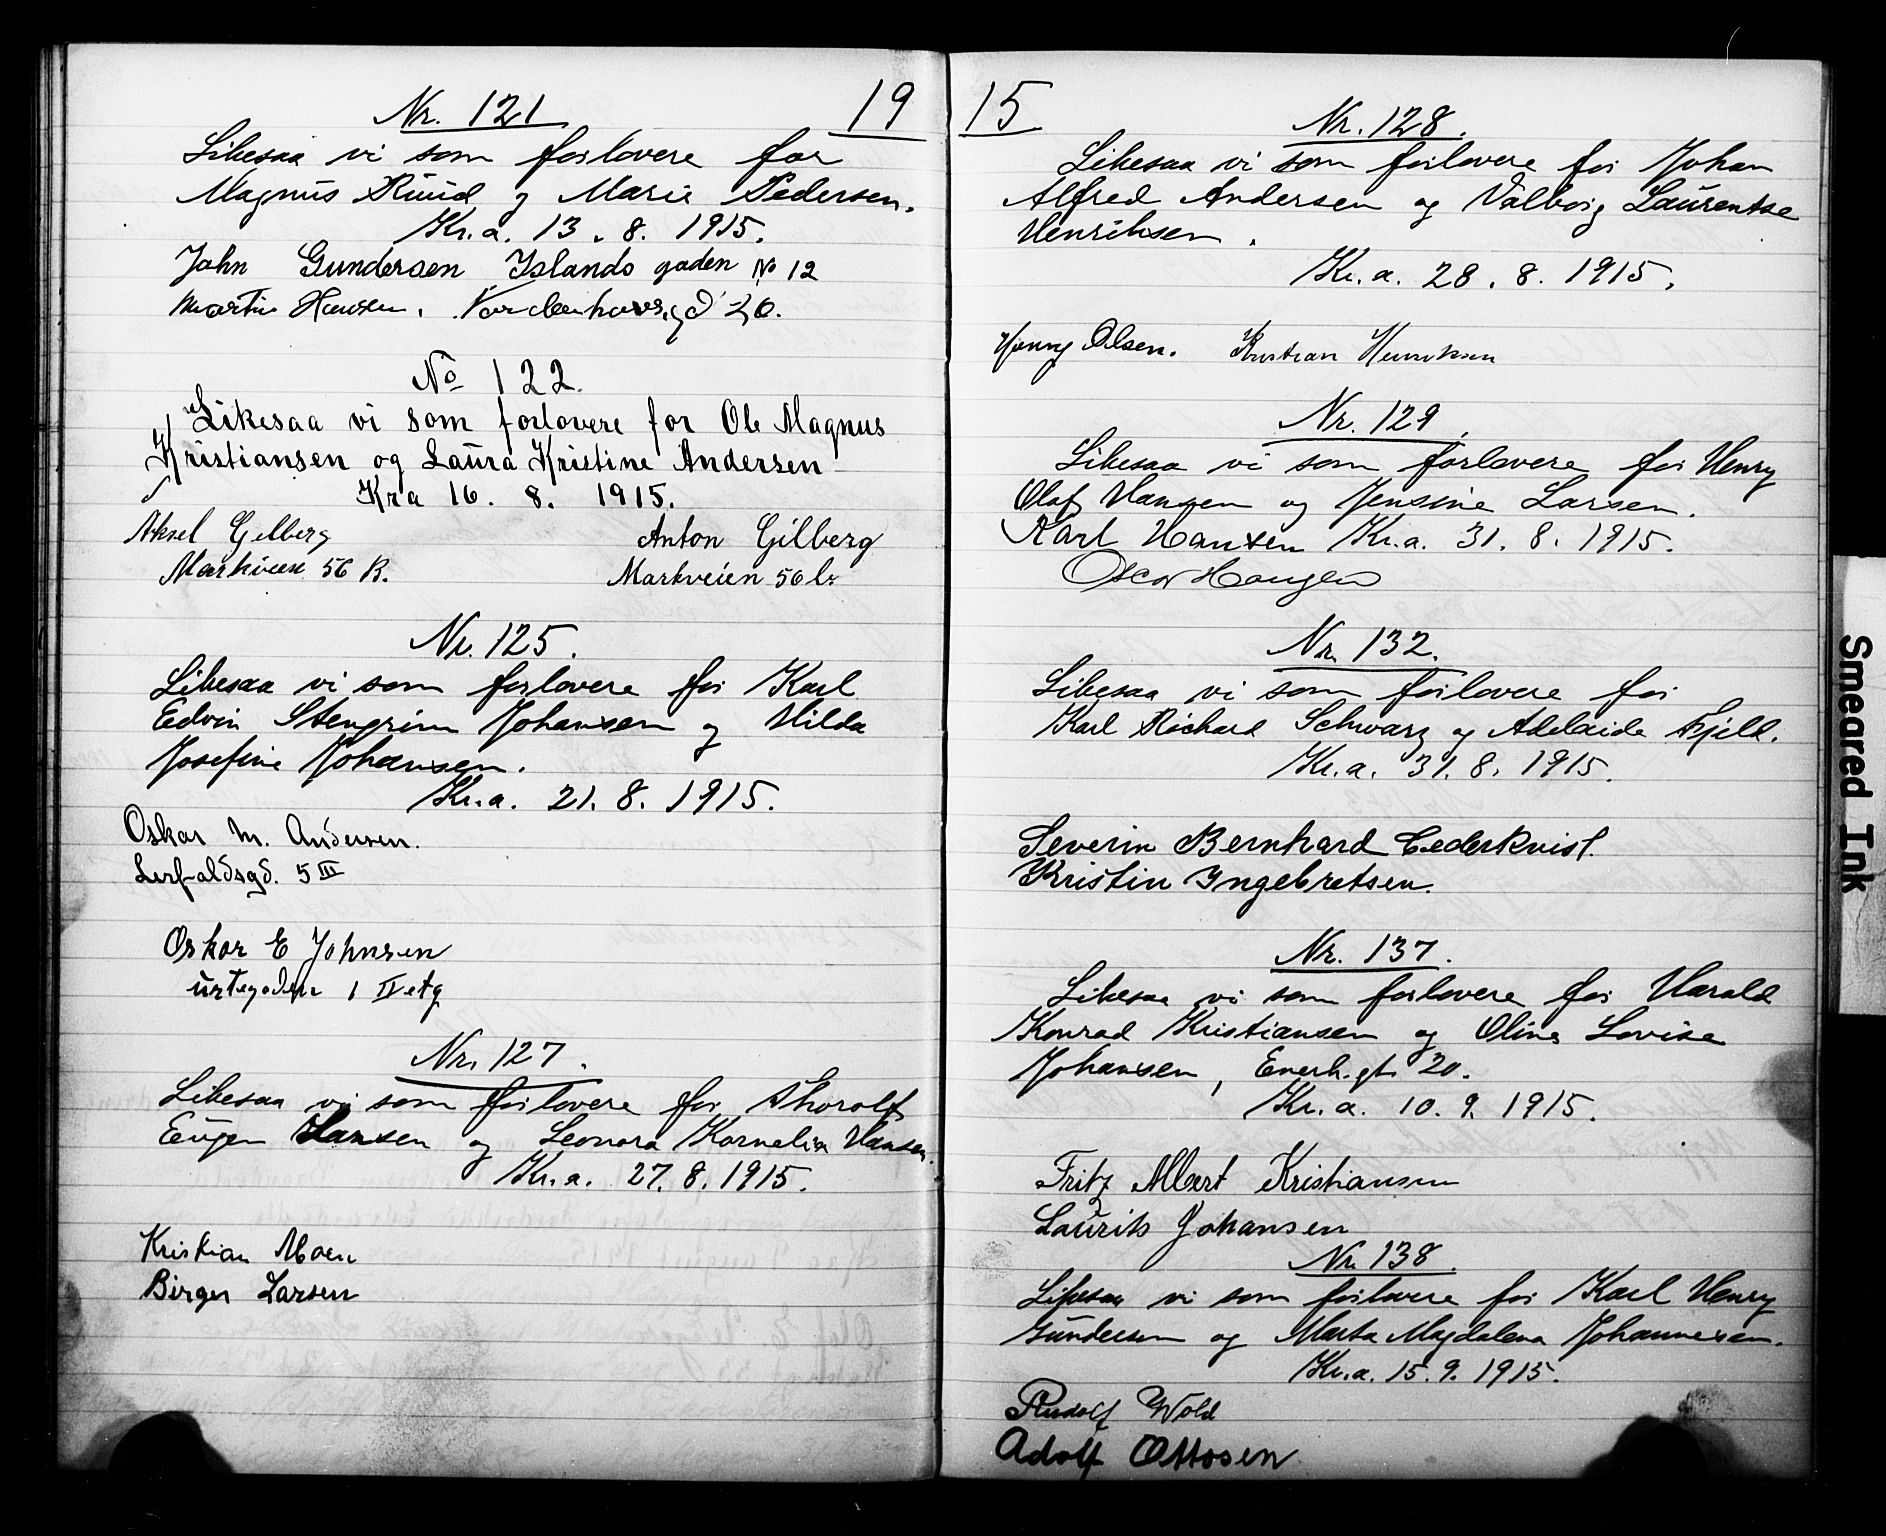 19
Nr. 121
Likesaa vi som forlovere for
Magnus Ruud og Marie Pedersen.
Kr.a. 13. 8. 1915.
John Gundersen Islands gaden No 12
Martin Hansen.
No 122.
Likesaa vi som forlovere for Ole Magnus
Kristiansen og Laura Kristine Andersen
Kra 16. 8. 1915.
Aksel Gilberg Anton Gilberg
Markveien 56 B. Markveien 56 b
Nr. 125.
Likesaa vi som forlovere for Karl
Edvin Stengrim Johansen og Hilda
Josefine Johansen.
Kr.a. 21. 8. 1915.
Oskar M. Andersen.
Lerfaldsgd. 5 III
Oskar E Johnsen
urtegaden 1 II etg
Nr. 127.
Likesaa vi som forlovere for Thorolf
Eugen Hansen og Leonora Kornelia Hansen.
Kr.a. 27. 8. 1915.
Kristian Moen
Birger Larsen
15
Nr. 128.
Likesaa vi som forlovere for Johan
Alfred Andersen og Valborg Laurentse
Henriksen.
Kr.a. 28. 8. 1915.
Henry Olsen. Kristian Henriksen
Nr. 129.
Likesaa vi som forlovere for Henry
Olaf Hansen og Jensine Larsen.
Karl Hansen Kr.a. 31. 8. 1915.
Oscar Haugen
Nr. 132.
Likesaa vi som forlovere for
Karl Richard Schwarz og Adelaide Fjeld.
Kr.a. 31. 8. 1915.
Severin Bernhard Cederkvist.
Kristin Ingebretsen.
Nr. 137.
Likesaa vi som forlovere for Harald
Konrad Kristiansen og Oline Lovise
Johansen, Enerh.gt. 20.
Kr.a. 10. 9. 1915.
Fritz Albert Kristiansen
Laurits Johansen
Nr. 138.
Likesaa vi som forlovere for Karl Henry
Gundersen og Marta Magdalena Johannesen.
Kr.a. 15. 9. 1915.
Rudolf Wold
Adolf Ottosen
Smeared Ink